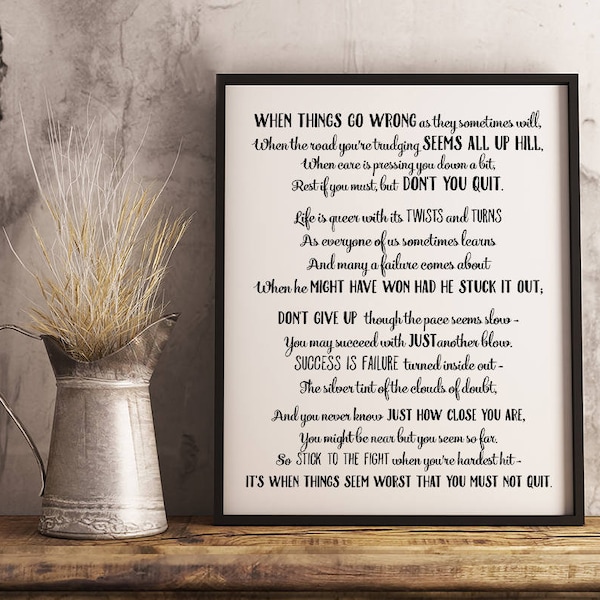 WHEN THINGS GO WRONG as they sometimes will,
When the road you're trudging SEEMS ALL UP HILL,
When care is pressing you down a bit,
Rest if you must, but DON'T YOU QUIT.
Life is queer with its TWISTS and TURNS
As everyone of us sometimes learns
And many a failure comes about
When he MIGHT HAVE WON HAD HE STUCK IT OUT;
DON'T GIVE UP though the pace seems slow -
You may succeed with JUST another blow.
SUCCESS IS FAILURE turned inside out -
The silver tint of the clouds of doubt,
And you never know JUST HOW CLOSE YOU ARE,
You might be near but you seem so far.
So STICK TO THE FIGHT when you're hardest hit -
IT'S WHEN THINGS SEEM WORST THAT YOU MUST NOT QUIT.